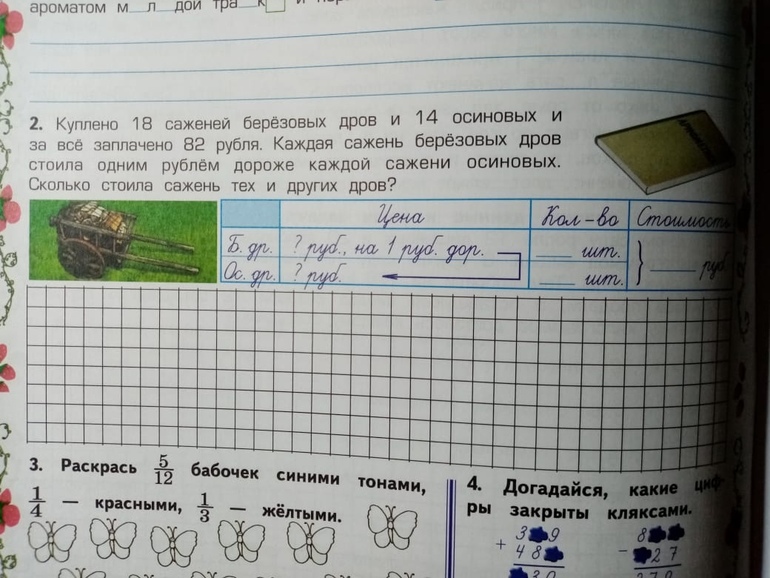 ароматом м л дой тра к и
2. Куплено 18 саженей берёзовых дров и 14 осиновых и
за всё заплачено 82 рубля. Каждая сажень берёзовых дров
стоила одним рублём дороже каждой сажени осиновых.
Сколько стоила сажень тех и других дров?
Цена Кол-во Стоимость
Б. др. ? руб., на 1 руб. дор. ___ шт.
Ос. др. ? руб. ___ шт. } ___ руб.
3. Раскрась 5/12 бабочек синими тонами,
1/4 — красными, 1/3 — жёлтыми.
4. Догадайся, какие циф-
ры закрыты кляксами.
3 9 8
+ 4 8 - 2 7
3 0